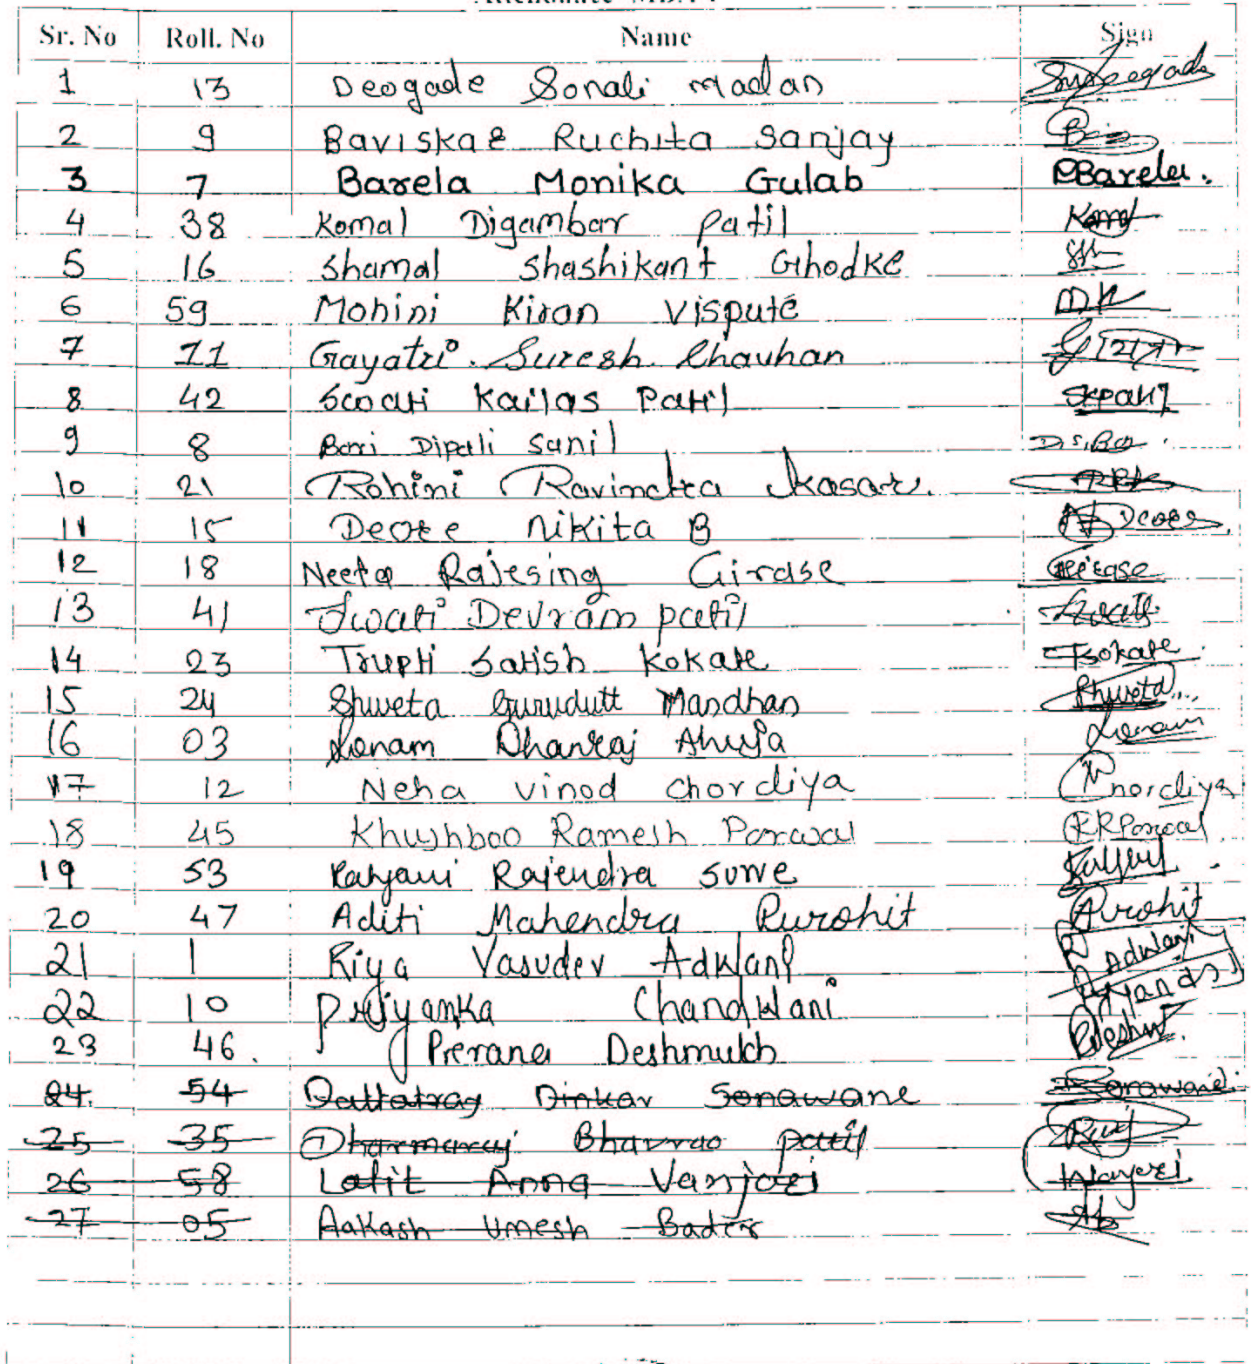 Sr. No Roll. No Name Sign
1 13 Deogade Sonali Madan
2 9 Baviskar Ruchita Sanjay
3 7 Barela Monika Gulab PBarela.
4 38 Komal Digambar Patil Komal
5 16 Shamal Shashikant Ghodke
6 59 Mohini Kiran Vispute MK
7 11 Gayatri Suresh Chauhan
8 42 Swati Kailas Patil SKPatil
9 8 Bari Dipali Sunil
10 21 Rohini Ravindra Kasar. RRK
11 15 Deore Nikita B Deore
12 18 Neeta Rajesing Girase Girase
13 41 Swati Devram patil Swati
14 23 Trupti Satish Kokate
15 24 Shweta Gurudutt Mandhan Shweta
16 03 Sonam Dhanraj Ahuja Sonam
17 12 Neha vinod chordiya
18 45 Khushboo Ramesh Porwal KRPorwal
19 53 Kalyani Rajendra Surve
20 47 Aditi Mahendra Purohit Purohit
21 1 Riya Vasudev Adwani Adwani
22 10 Priyanka Chandwani
23 46. Prerana Deshmukh
24. 54 Dattatray Dinkar Sonawane Sonawane
25 35 Dharmaraj Bhavrao patil
26 58 Lalit Anna Vanjari
27 05 Aakash Umesh Bader